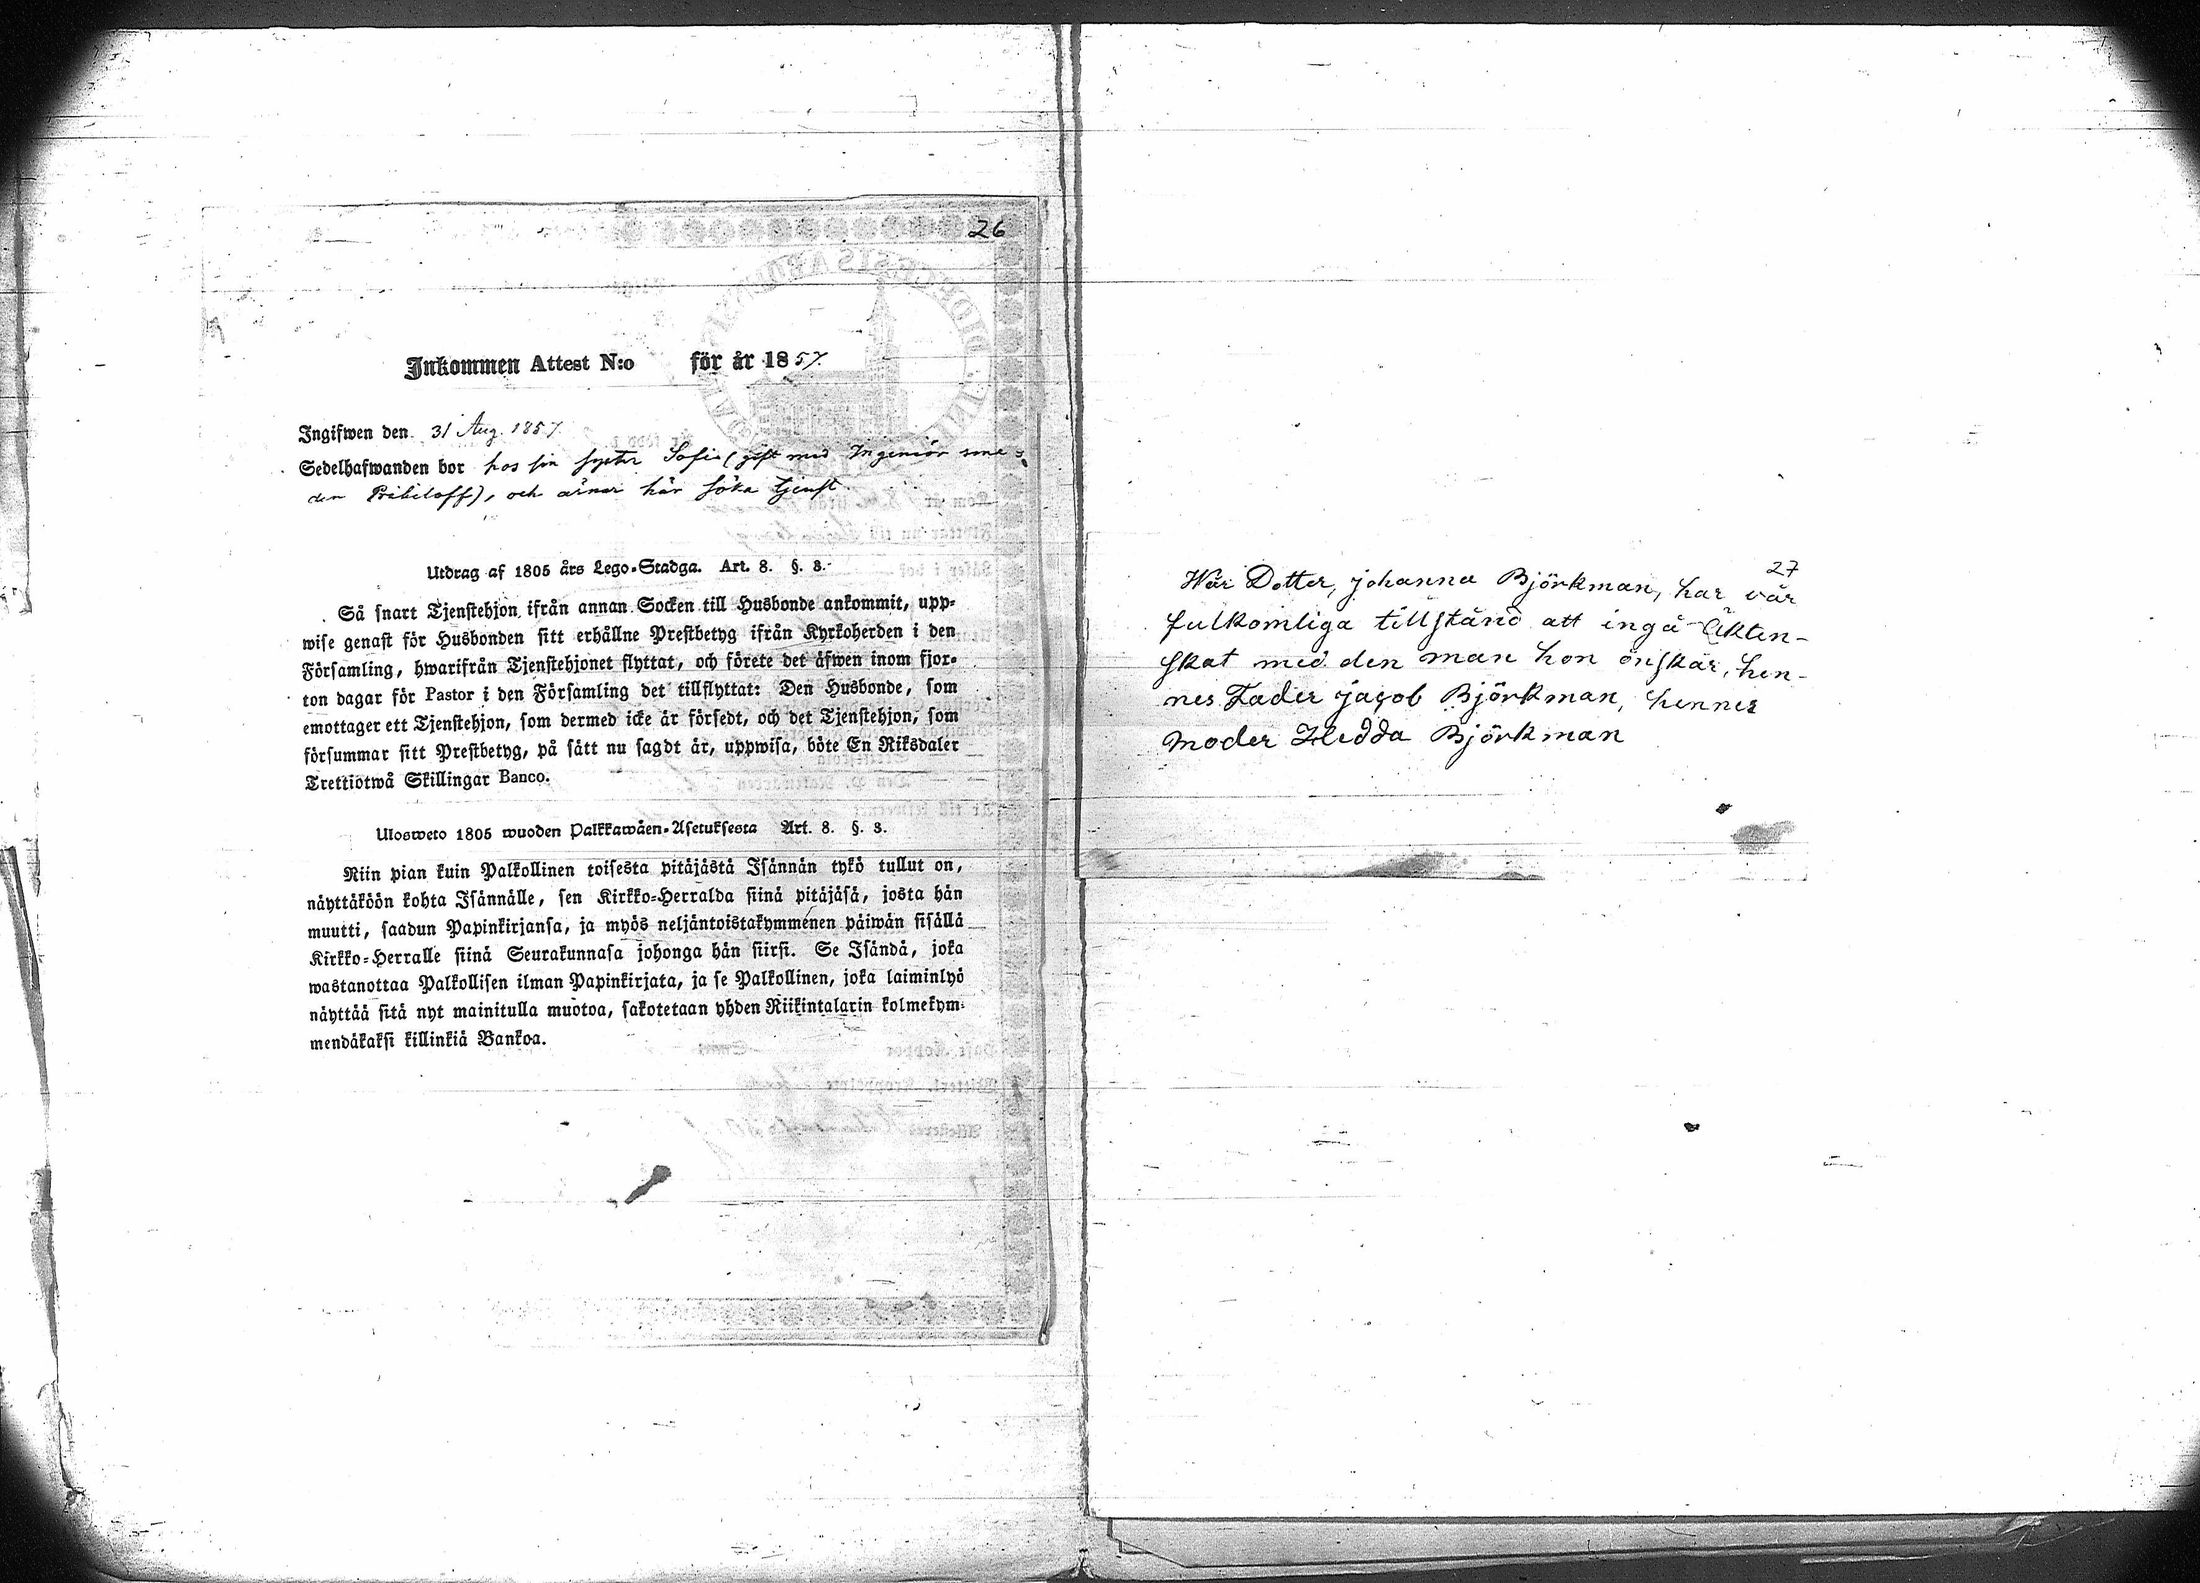 26
Inkommen Attest N:o för år 1857.
Ingifwen den 31 Aug. 1857.
Sedelhafwanden bor hos sin syster Sofie (gift med Ingeniör
den Pribiloff), och ärnar här söka tjenst.
Utdrag af 1805 års Lego-Stadga. Art. 8. §. 3.
Så snart Tjenstehjon ifrån annan Socken till Husbonde ankommit, upp-
wise genast för Husbonden sitt erhållne Prestbetyg ifrån Kyrkoherden i den
Församling, hwarifrån Tjenstehjonet flyttat, och förete det äfwen inom fjor-
ton dagar för Pastor i den Församling det tillflyttat: Den Husbonde, som
emottager ett Tjenstehjon, som dermed icke är försedt, och det Tjenstehjon, som
försummar sitt Prestbetyg, på sätt nu sagdt är, uppwisa, böte En Riksdaler
Trettiotwå Skillingar Banco.
Ulosweto 1805 wuoden Palkkawäen-Asetuksesta Art. 8. §. 3.
Niin pian kuin Palkollinen toisesta pitäjästä Isännän tykö tullut on,
näyttäköön kohta Isännälle, sen Kirkko-Herralda siinä pitäjäsä, josta hän
muutti, saadun Papinkirjansa, ja myös neljäntoistakymmenen päiwän sisällä
Kirkko-Herralle siinä Seurakunnasa johonga hän siirsi. Se Isändä, joka
wastanottaa Palkollisen ilman Papinkirjata, ja se Palkollinen, joka laiminlyö
näyttää sitä nyt mainitulla muotoa, sakotetaan yhden Riikintalarin kolmekym-
mendäkaksi killinkiä Bankoa.
27
Wår Dotter, johanna Björkman, har vår
fulkomliga tillstånd att ingå Äkten-
skat med den man hon önskar, hen-
nes Fader jacob Björkman, hennes
moder Hedda Björkman